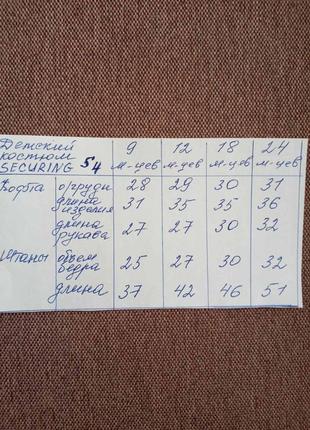 Детский 9 12 18 24
костюм м-цев м-цев м-цев м-цев
SECURING 54
Кофта о/груди 28 29 30 31
длина изделия 31 35 35 36
длина рукава 27 27 30 32
Штаны объем бедра 25 27 30 32
длина 37 42 46 51